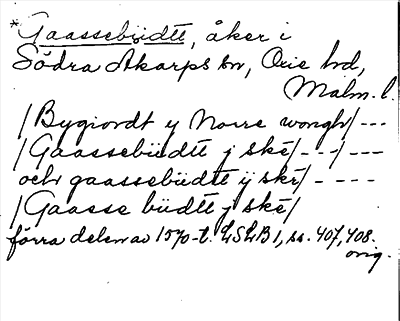 *Gaassebüdtt, åker i
Södra Åkarps sn, Oxie hd,
Malm. l.
/Bygiordt y Norre wongh/ ---
/Gaassebüdtt j skè/ ---/ ---
och gaassebüdtt ÿ skè/ - ---
/Gaasse büdtt ÿ skè/
förra delen av 1570-t. LSLB 1, ss. 407, 408.
orig.